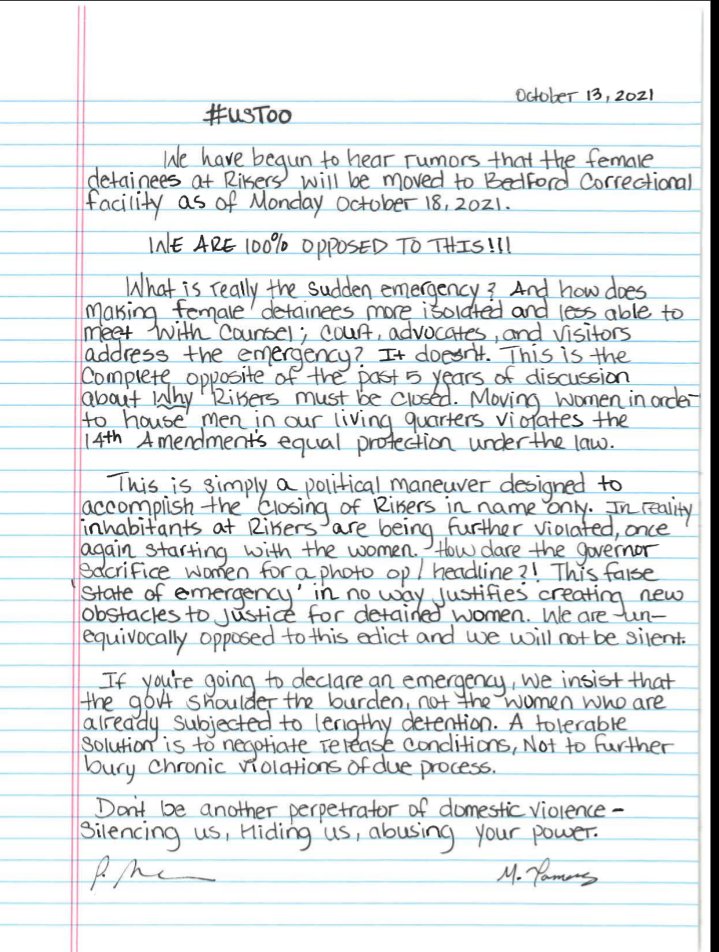 October 13, 2021
#USTOO
We have begun to hear rumors that the female
detainees at Rikers will be moved to Bedford Correctional
facility as of Monday October 18, 2021.
WE ARE 100% OPPOSED TO THIS!!!
What is really the sudden emergency? And how does
making female detainees more isolated and less able to
meet with counsel; court, advocates, and visitors
address the emergency? It doesn't. This is the
complete opposite of the past 5 years of discussion
about Why Rikers must be closed. Moving women in order
to house men in our living quarters violates the
14th Amendment's equal protection under the law.
This is simply a political maneuver designed to
accomplish the closing of Rikers in name only. In reality
inhabitants at Rikers are being further violated, once
again starting with the women. How dare the governor
sacrifice women for a photo op / headline?! This false
'state of emergency' in no way justifies creating new
obstacles to justice for detained women. We are un-
equivocally opposed to this edict and we will not be silent.
If you're going to declare an emergency, we insist that
the gov't shoulder the burden, not the women who are
already subjected to lengthy detention. A tolerable
solution is to negotiate release conditions, Not to further
bury chronic violations of due process.
Don't be another perpetrator of domestic violence -
Silencing us, Hiding us, abusing your power.
M.